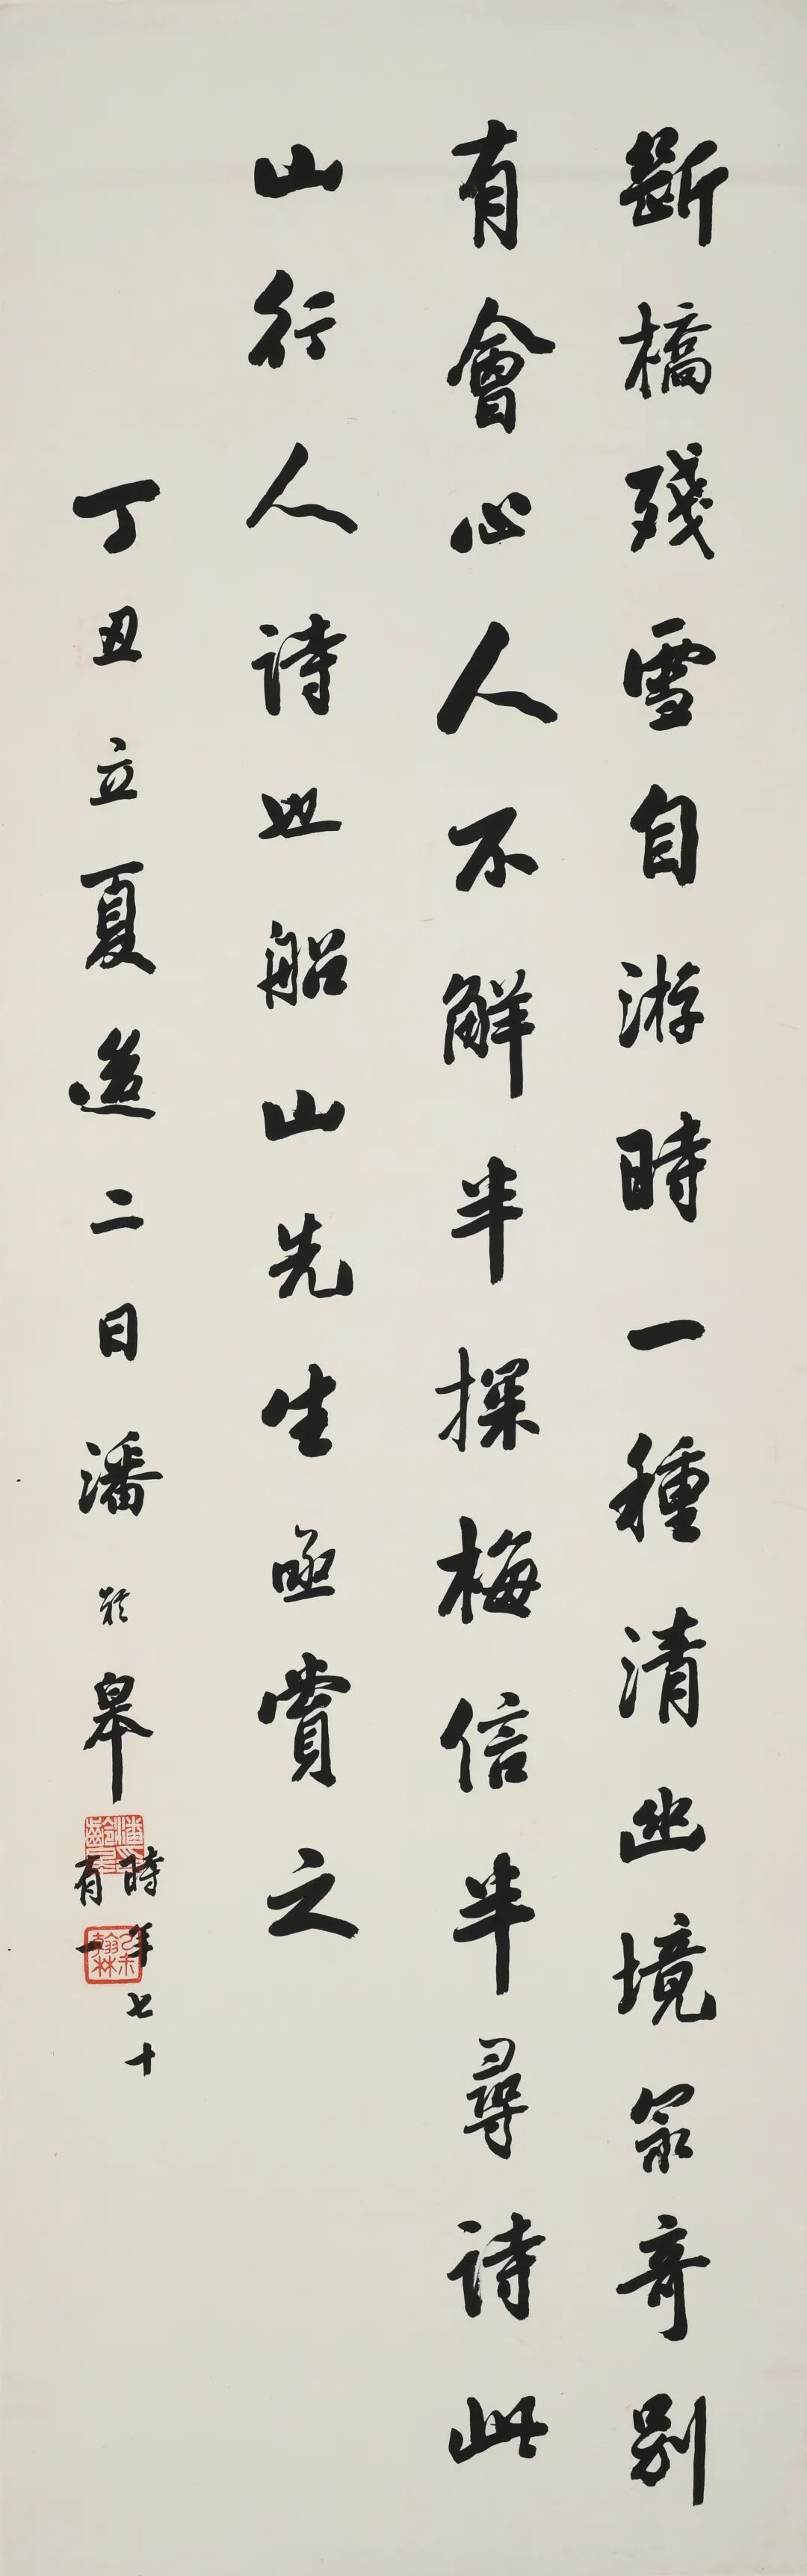 斷橋殘雪自游時一種清幽境㝡奇別
有會心人不解半探梅信半尋詩此
山行人詩也船山先生亟賞之
丁丑立夏後二日潘齡皋
時年七十
有一
潘齡皋
乙未翰林